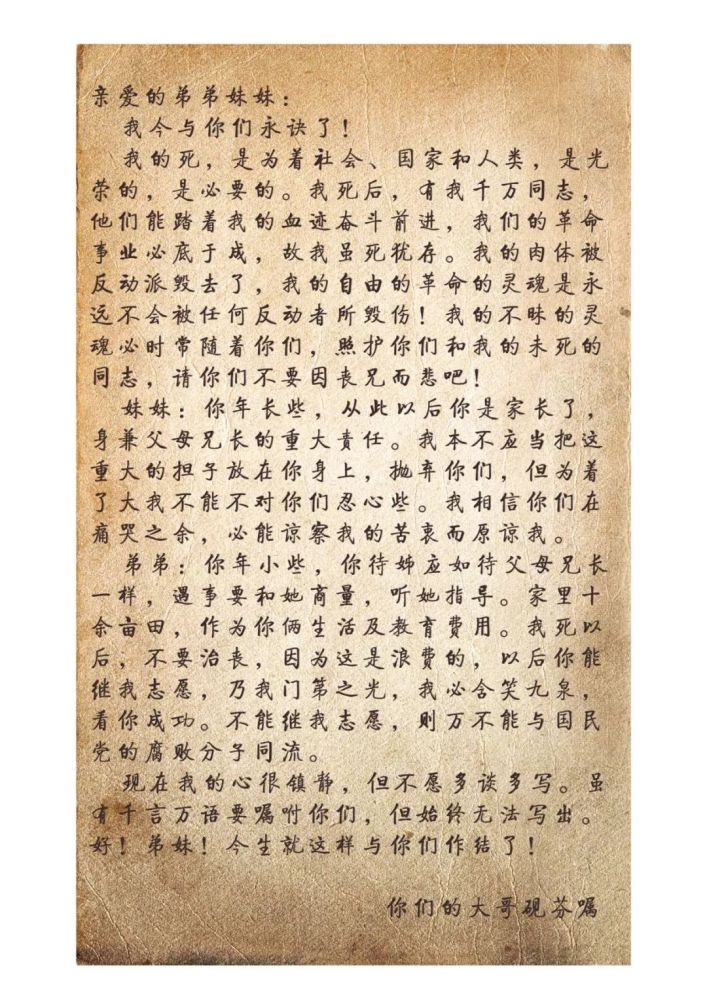 亲爱的弟弟妹妹：
我今与你们永诀了！
我的死，是为着社会、国家和人类，是光
荣的，是必要的。我死后，有我千万同志，
他们能踏着我的血迹奋斗前进，我们的革命
事业必底于成，故我虽死犹存。我的肉体被
反动派毁去了，我的自由的革命的灵魂是永
远不会被任何反动者所毁伤！我的不昧的灵
魂必时常随着你们，照护你们和我的未死的
同志，请你们不要因丧兄而悲吧！
妹妹：你年长些，从此以后你是家长了，
身兼父母兄长的重大责任。我本不应当把这
重大的担子放在你身上，抛弃你们，但为着
了大我不能不对你们忍心些。我相信你们在
痛哭之余，必能谅察我的苦衷而原谅我。
弟弟：你年小些，你待姊应如待父母兄长
一样，遇事要和她商量，听她指导。家里十
余亩田，作为你俩生活及教育费用。我死以
后，不要治丧，因为这是浪费的，以后你能
继我志愿，乃我门第之光，我必含笑九泉，
看你成功。不能继我志愿，则万不能与国民
党的腐败分子同流。
现在我的心很镇静，但不愿多谈多写。虽
有千言万语要嘱咐你们，但始终无法写出。
好！弟妹！今生就这样与你们作结了！
你们的大哥砚芬嘱